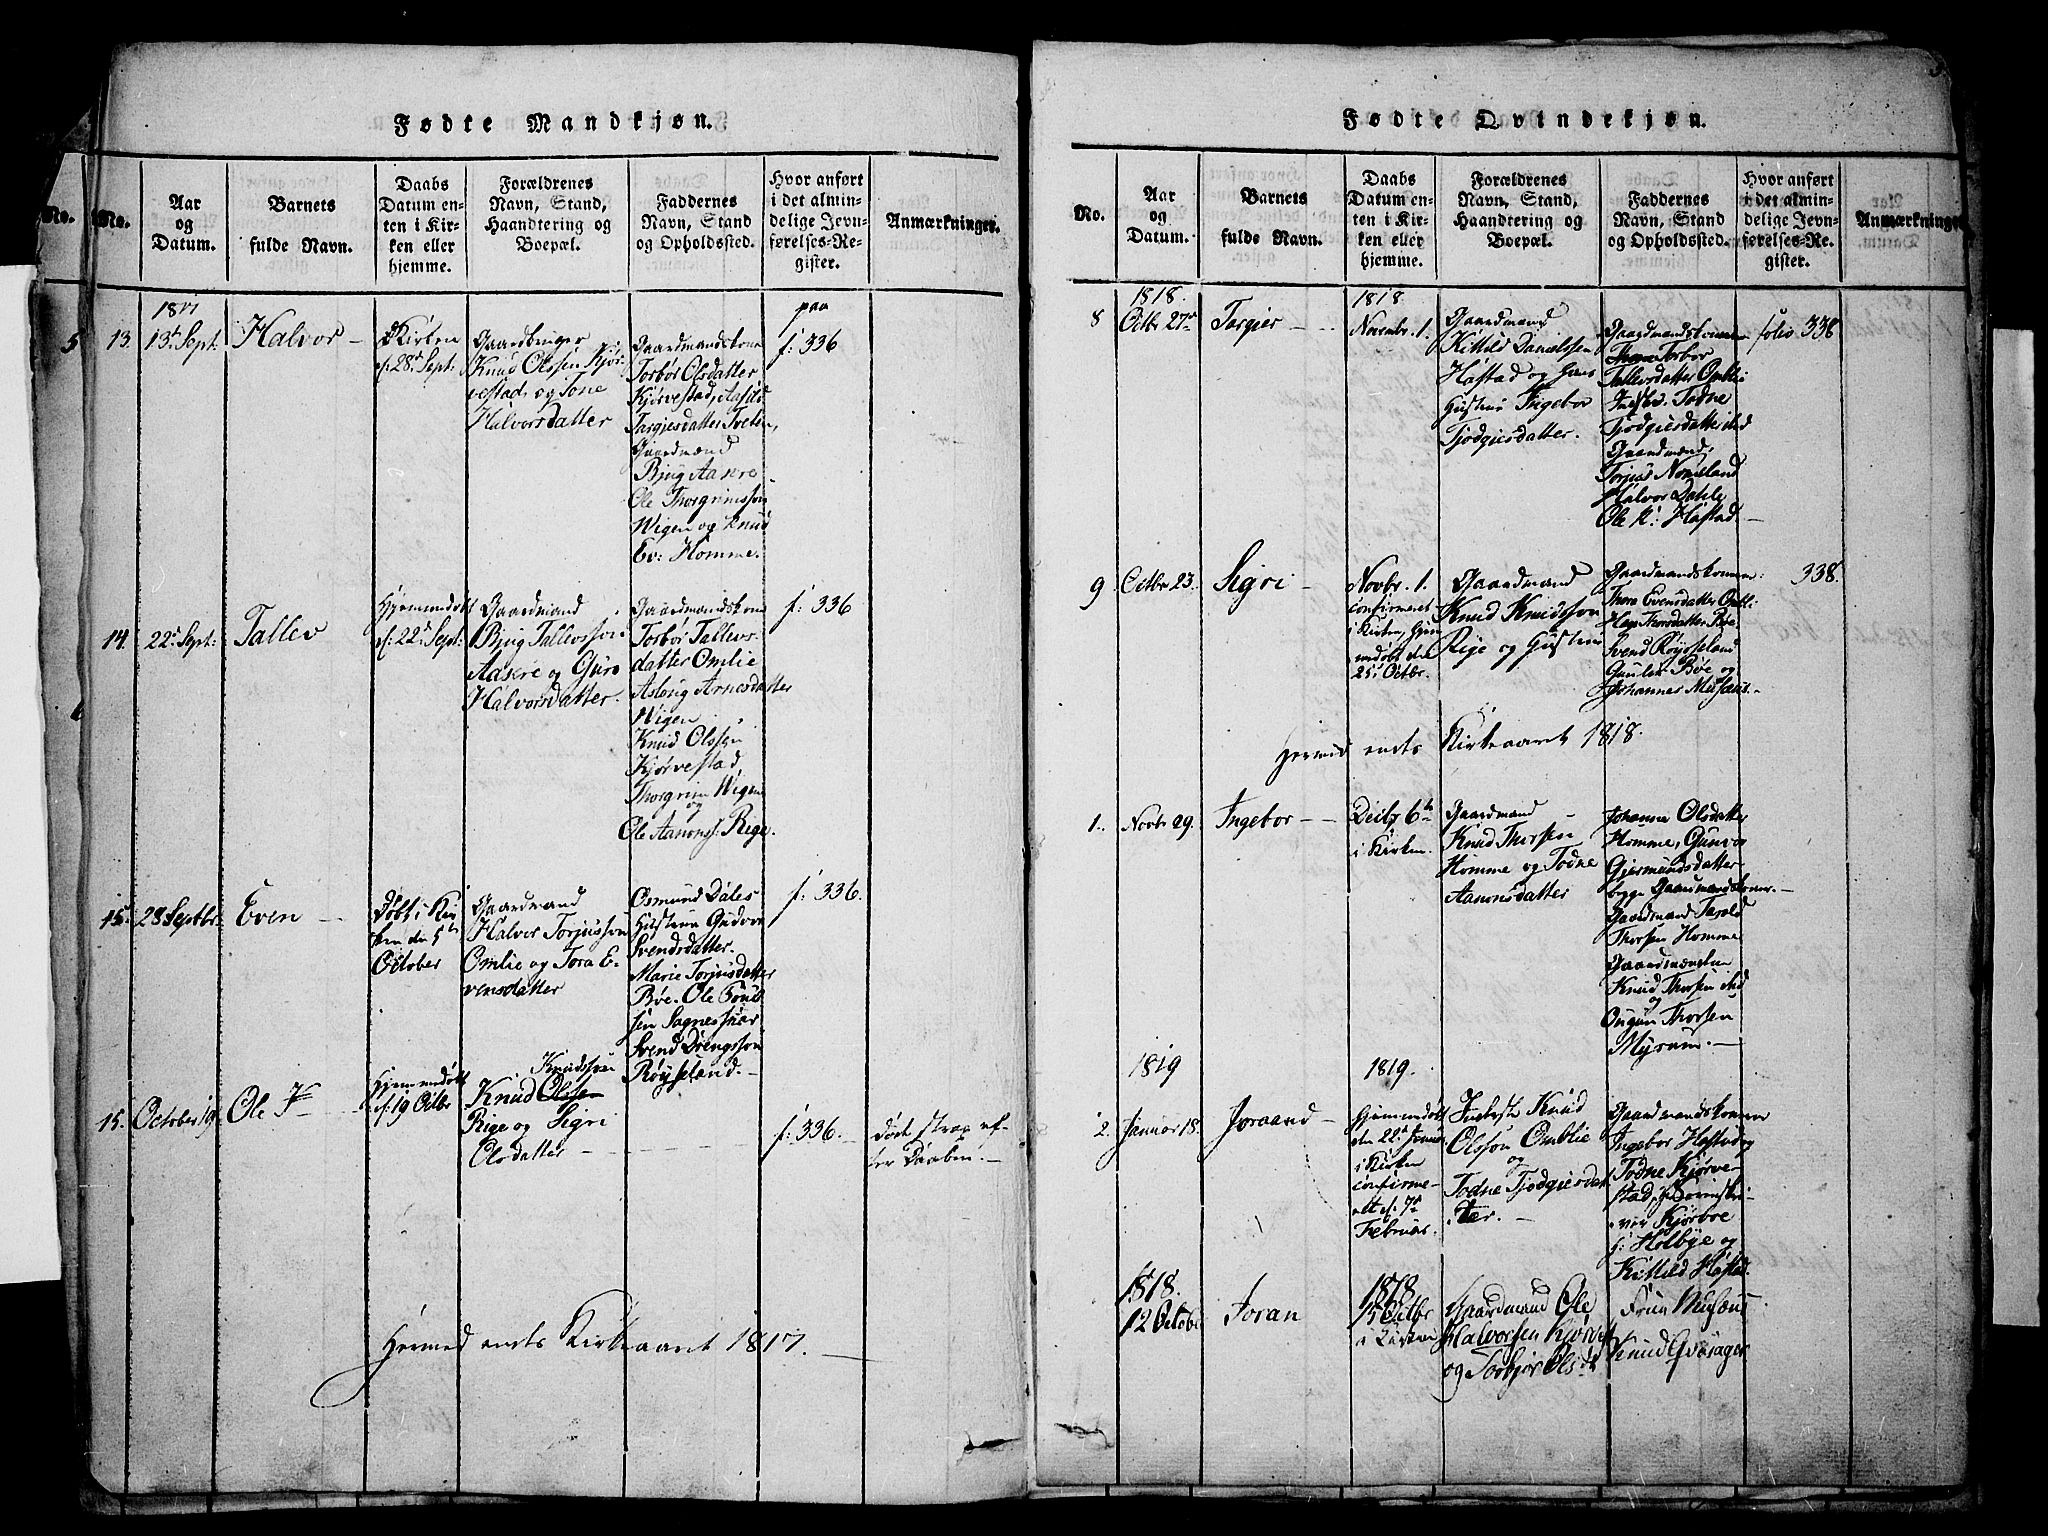 Fødte Mandkjøn.
No.
No.
Aar
og
Datum.
Barnets
fulde Navn.
Daabs
Datum en-
ten i Kir-
ken eller
hjemme.
Forældrenes
Navn, Stand,
Haandtering og
Boepæl.
Faddernes
Navn, Stand
og Opholdssted.
Hvor anført
i det almin-
delige Jevn-
førelses-Re-
gister.
Anmærkninger.
5
6
13.
1817
13de Sept:
Halvor
Kirken
d: 28de Sept:
Gaardbruger
Knud Olssen Kjør-
vestad og Tone
Halvorsdatter
Gaardmandskone
Torbor Olsdatter
Kjørvestad, Aaslö
Targjesdatter Tveten,
Gaardmænd
Bjug Aakre
Ole Thorgrimsson
Wigen og Knud
Ev: Homme.
paa
f: 336
14.
22de Sept:
Tallev
Hjemmedøbt
d: 22de Sept:
Gaardmand
Bjug Tallevsson
Aakre og Guro
Halvorsdatter.
Gaardmandskone
Torbor Tallevs-
datter Omlie
Aslaug Arnesdatter
Wigen
Knud Olssen
Kjørvestad
Thorgrim Wigen
og
Ole Aanonss: Rige.
f: 336
15.
28 Septbr.
Even
Døbt i Kir
ken den 5te
October
Gaardmand
Halvor Torjusson
Omlie og Tora E-
vensdatter
Osmund Dales
Hustrue Gudvor
Svendsdatter.
Marie Torjusdatter
Bøe. Ole Tarjes
sen Sagneskar
Svend Drengsson
Røyseland.
f: 336.
15.
October 19.
Ole K
Hjemmedøbt
d: 19 Octbr
Knudsson
Knud Olssen
Rige og Sigri
Olsdatter
f: 336.
Døde strax ef-
ter Daaben.
Hermed endts Kirkeaaret 1817.
Fødte Qvindekjøn.
No.
Aar
og
Datum.
Barnets
fulde Navn.
Daabs
Datum en-
ten i Kir-
ken eller
hjemme.
Forældrenes
Navn, Stand,
Haandtering og
Boepæl.
Faddernes
Navn, Stand
og Opholdssted.
Hvor anført
i det almin-
delige Jevn-
førelses-Re-
gister.
Anmærkninger
8
1818.
Octbr 27de
Targier
1818
Novembr. 1.
Gaardmand
Kittild Danielssen
Hastad og hans
Hustrue Ingebor
Tjodgiersdatter.
Gaardmandskonerne
Torbor
Tallevsdatter Omlie
Todne
Tjodgiersdatter
Gaardmænd
Torjus Nomeland
Halvor Dahle
Ole K: Hastad
folio 338
9
Octbr 23.
Sigri
Novbr. 1.
confirmeret
i Kirken, hjem
medøbt den
25de Octbr.
Gaardmand
Knud Knudsson
Rige og Hustrue
Gaardmandskonerne
Thora Evensdatter Omlie
Thorsdatter Bøe.
Svend Røysseland
Gunleu Bøe og
Johannes Musæus.
338.
Hermed endts Kirkeaaret 1818.
1.
Novbr 29.
Ingebor
Decbr 6te
i Kirken.
Gaardmand
Knud Thorsen
Homme og Todne
Aanonsdatter
Johanna Olsdatter
Homme, Gunvor
Gjermundsdatter
begge Gaardmandskoner.
Gaardmand Tarald
Thorsen Homme
Gaardmændene
Knud Thorsen
og
Ougun Thorsen
Myrum.
1819
2.
Januar 18.
Joraand
1819.
Hjemmedøbt
den 22de Janua
i Kirken
confirme-
ret d. 7de
Februar.
Inderste Knud
Olsson Omblie
og
Todne Tjodgiersdat
ter.
Gaardmandskonerne
Ingebor Hastad og
Todne Kjørve-
stad, Sorenskri-
ver Kjørboe
Holbye og
Kittild Hastad.
1818.
12 October
Joran
1818
15 Octbr
i Kirken
Gaardmand Ole
Halvorsen Kjørvest
og Torbjør Olsdt
Frue Musæus
Knud Qvärager